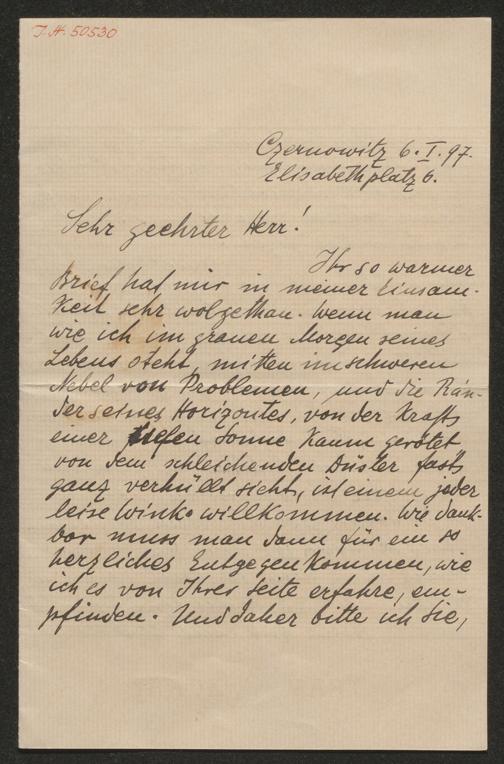 I.N. 50530
Czernowitz 6. I. 97.
Elisabethplatz 6.
Sehr geehrter Herr!
Ihr so warmer
Brief hat mir in meiner Einsam-
keit sehr wolgethan. Wenn man
wie ich im grauen Morgen seines
Lebens steht, mitten im schweren
Nebel von Problemen, und die Rän-
der seines Horizontes, von der Kraft
einer tiefen Sonne kaum gerötet
von dem schleichenden Düster fast
ganz verhüllt sieht, ist einem jeder
leise Wink willkommen. Wie dank-
bar muss man dann für ein so
herzliches Entgegenkommen, wie
ich es von Ihrer Seite erfahre, em-
pfinden. Und daher bitte ich Sie,